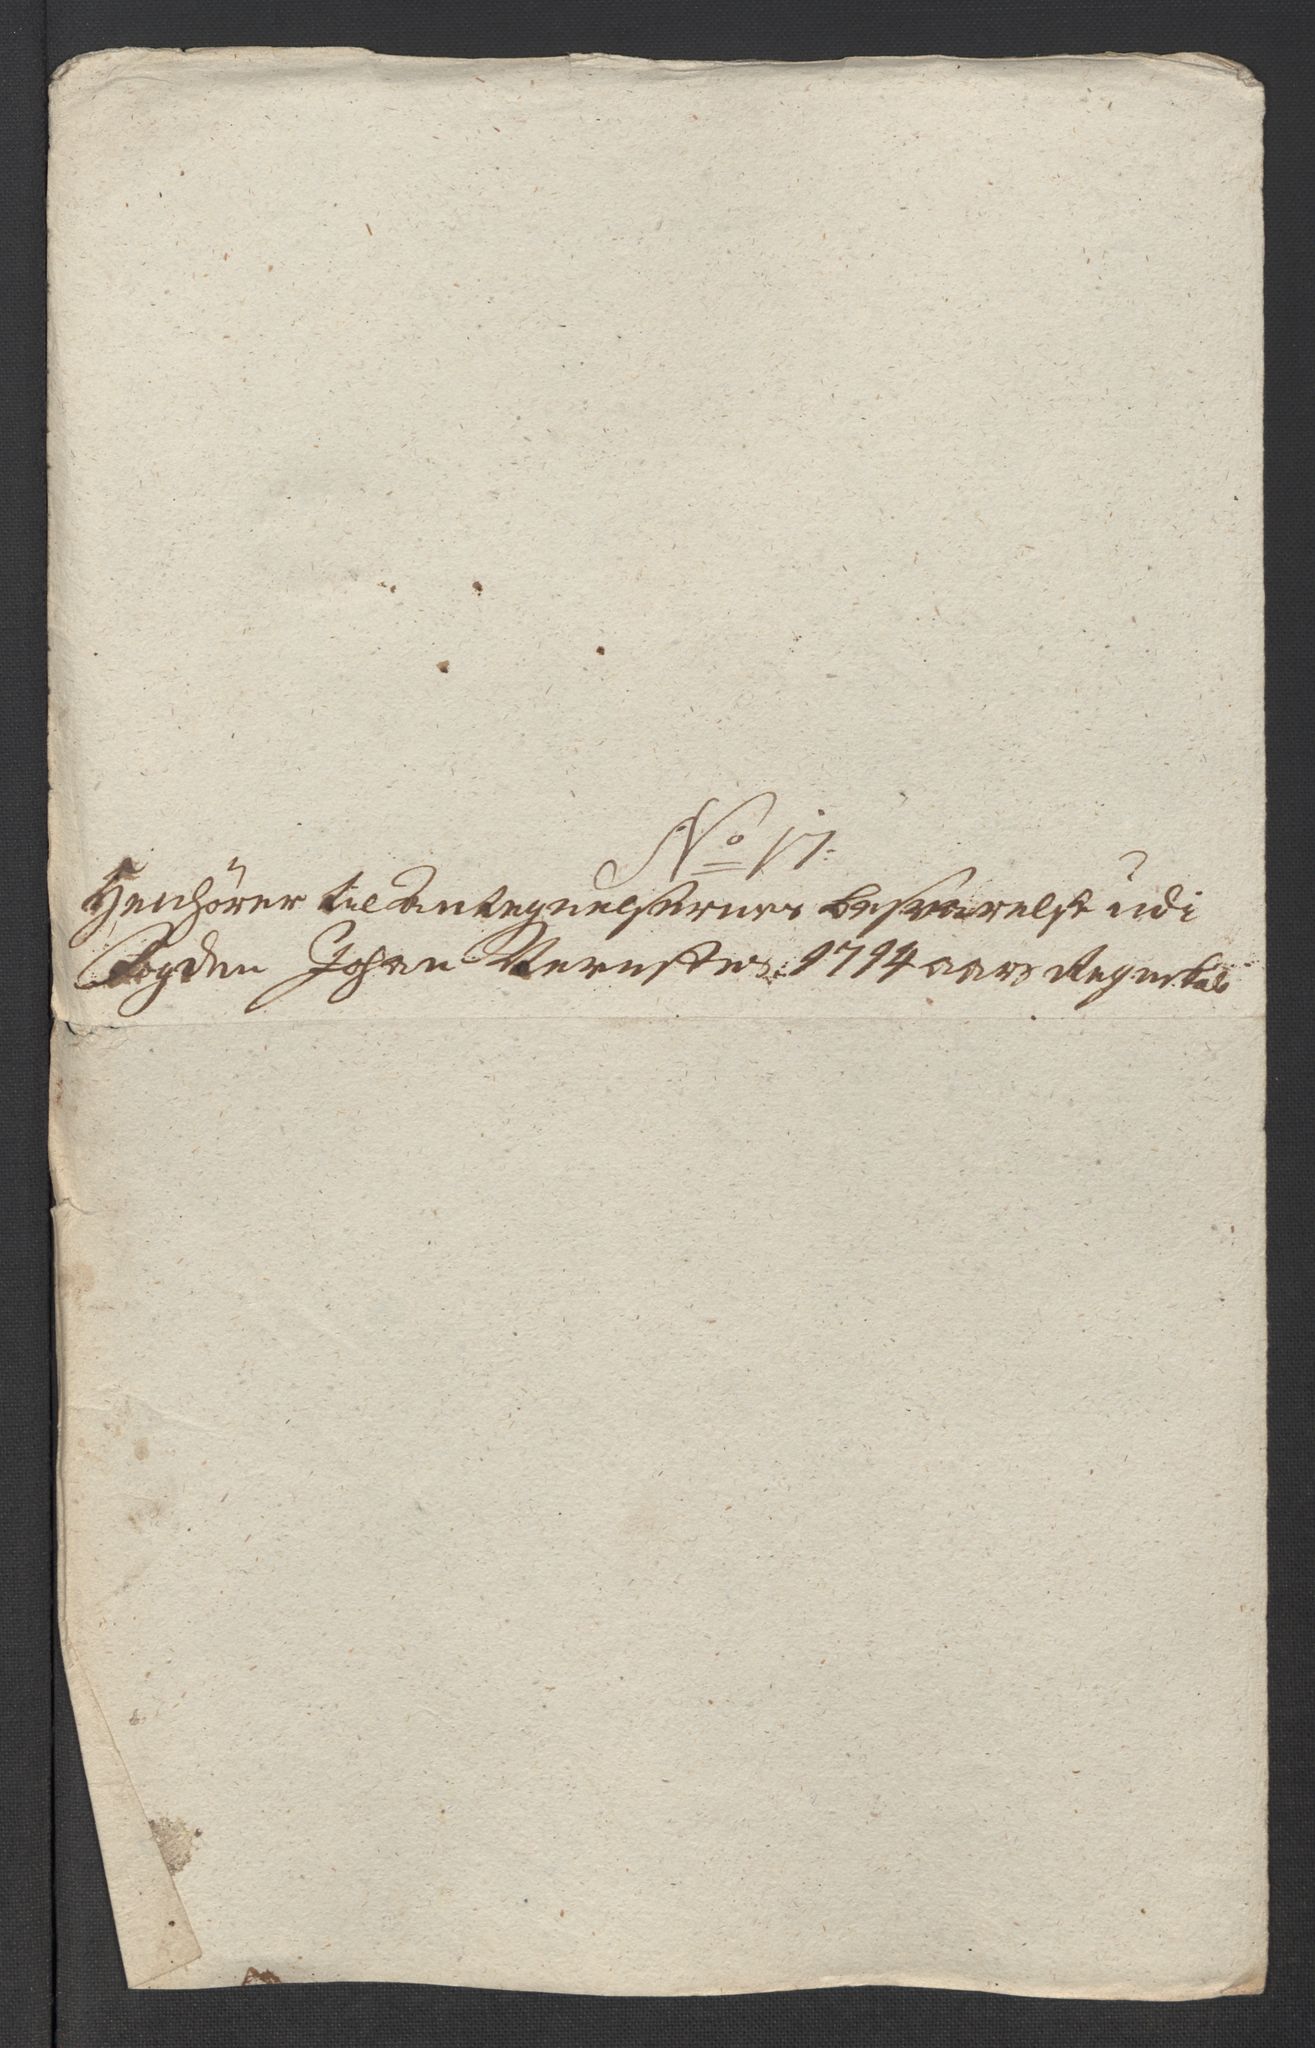 No 17.
Henhörer til Antegnelsernes besvarelse udi
Fogden Johan Vernstes: 1714 aars Regnskab